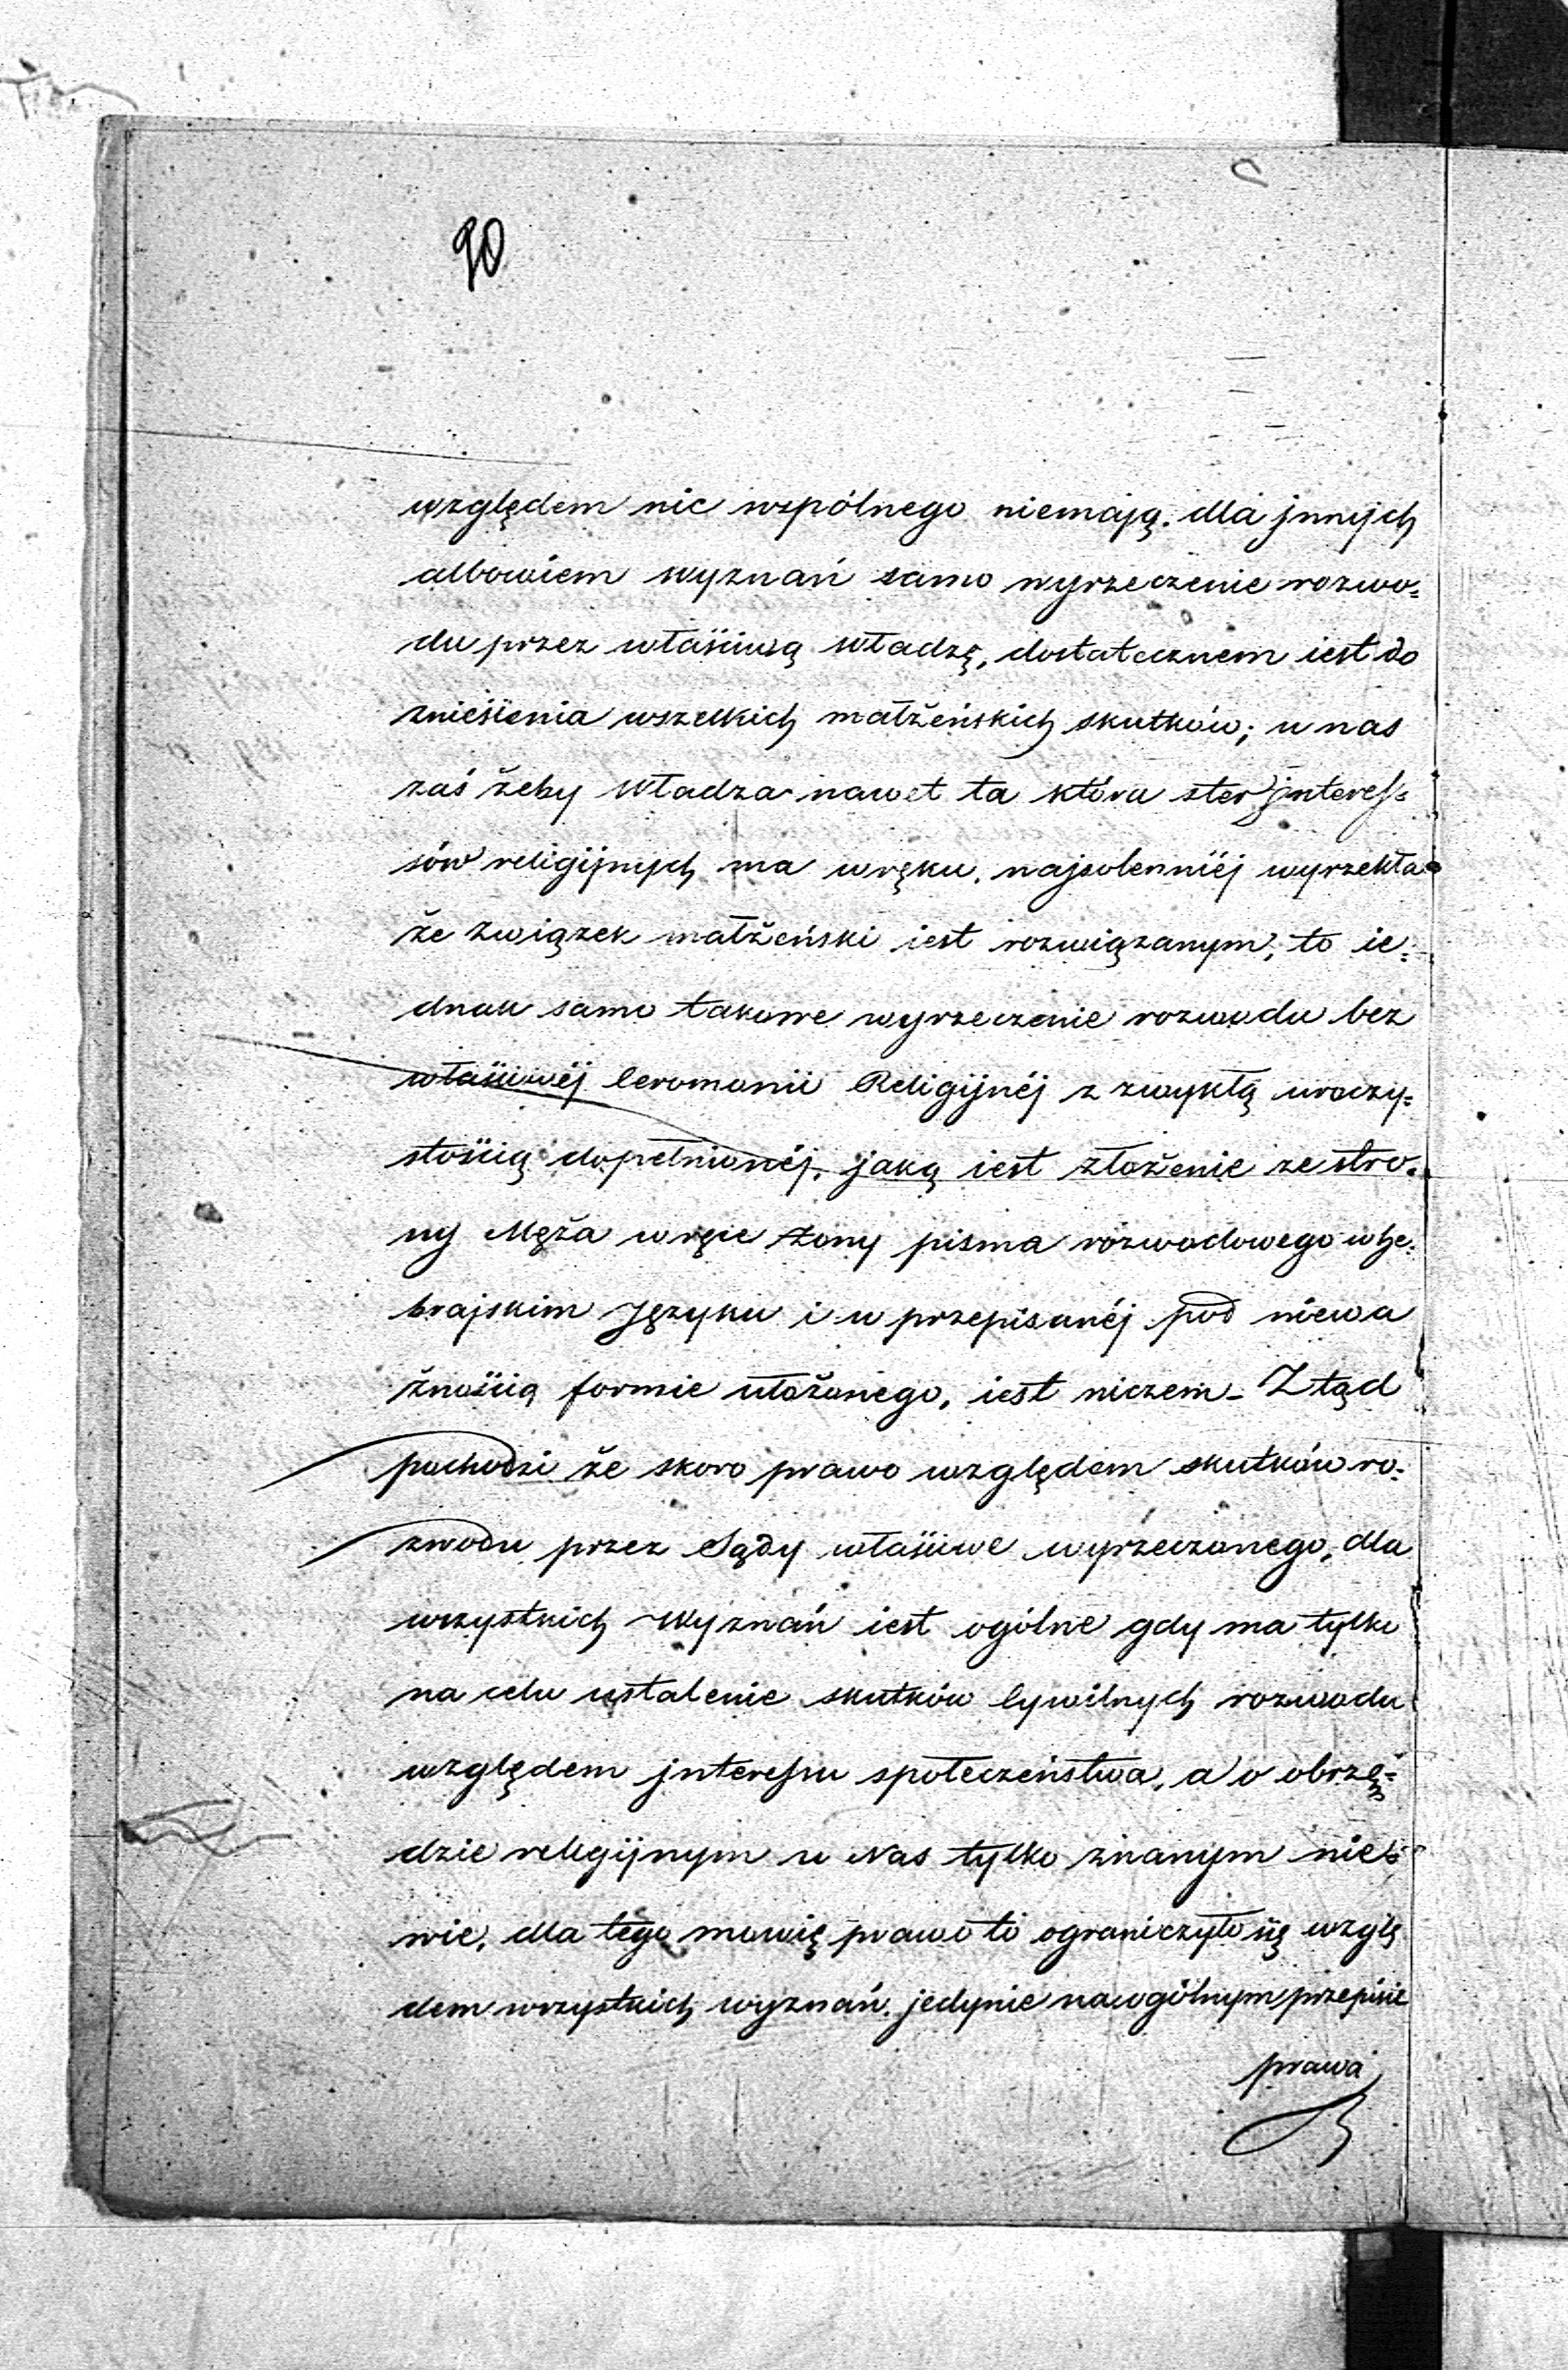 90
względem nic wspólnego niemają. dla jnnych
albowiem wyznań samo wyrzeczenie rozwo=
du przez właściwą Władzę, dostatecznem iest do
zniesienia wszelkich małżeńskich skutków; u nas
zaś żeby Władza nawet ta która ster jnteres=
sów religijnych ma w ręku, najsolenniéj wyrzekła
że związek małżeński iest rozwiązanym, to ie=
dnak samo takowe wyrzeczenie rozwodu bez
właściwéj Ceremonii Religijnéj z zwykłą uroczy=
stością dopełnionéj, jaką iest złożenie ze stro=
ny Męża w ręce Żony pisma rozwodowego w he=
brajskim Języku i w przepisanéj pod niewa
żnością formie ułożonego, iest niczem - Ztąd
pochodzi że skoro prawo względem skutków ro=
zwodu przez Sądy właściwe wyrzeczonego, dla
wszystkich Wyznań iest ogólne gdy ma tylko
na celu ustalenie skutków Cywilnych rozwodu
względem jnteressu społeczeństwa, a o obrzę=
dzie religijnym u Nas tylko znanym nie=
wie, dla tego mowię prawo to ograniczyło się wzglę
dem wszystkich wyznań jedynie na ogólnym przepisie
prawa